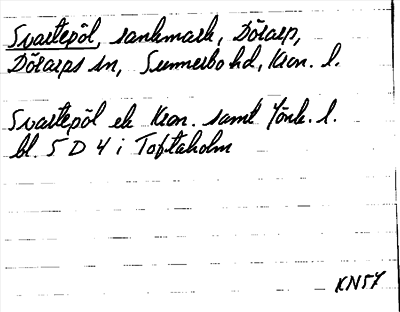 Svartepöl, sankmark, Dörarp,
Dörarps sn, Sunnerbo hd, Kron. l.
Svartepöl ek Kron. samt Jönk. l.
bl. 5 D 4 i Toftaholm
KN57